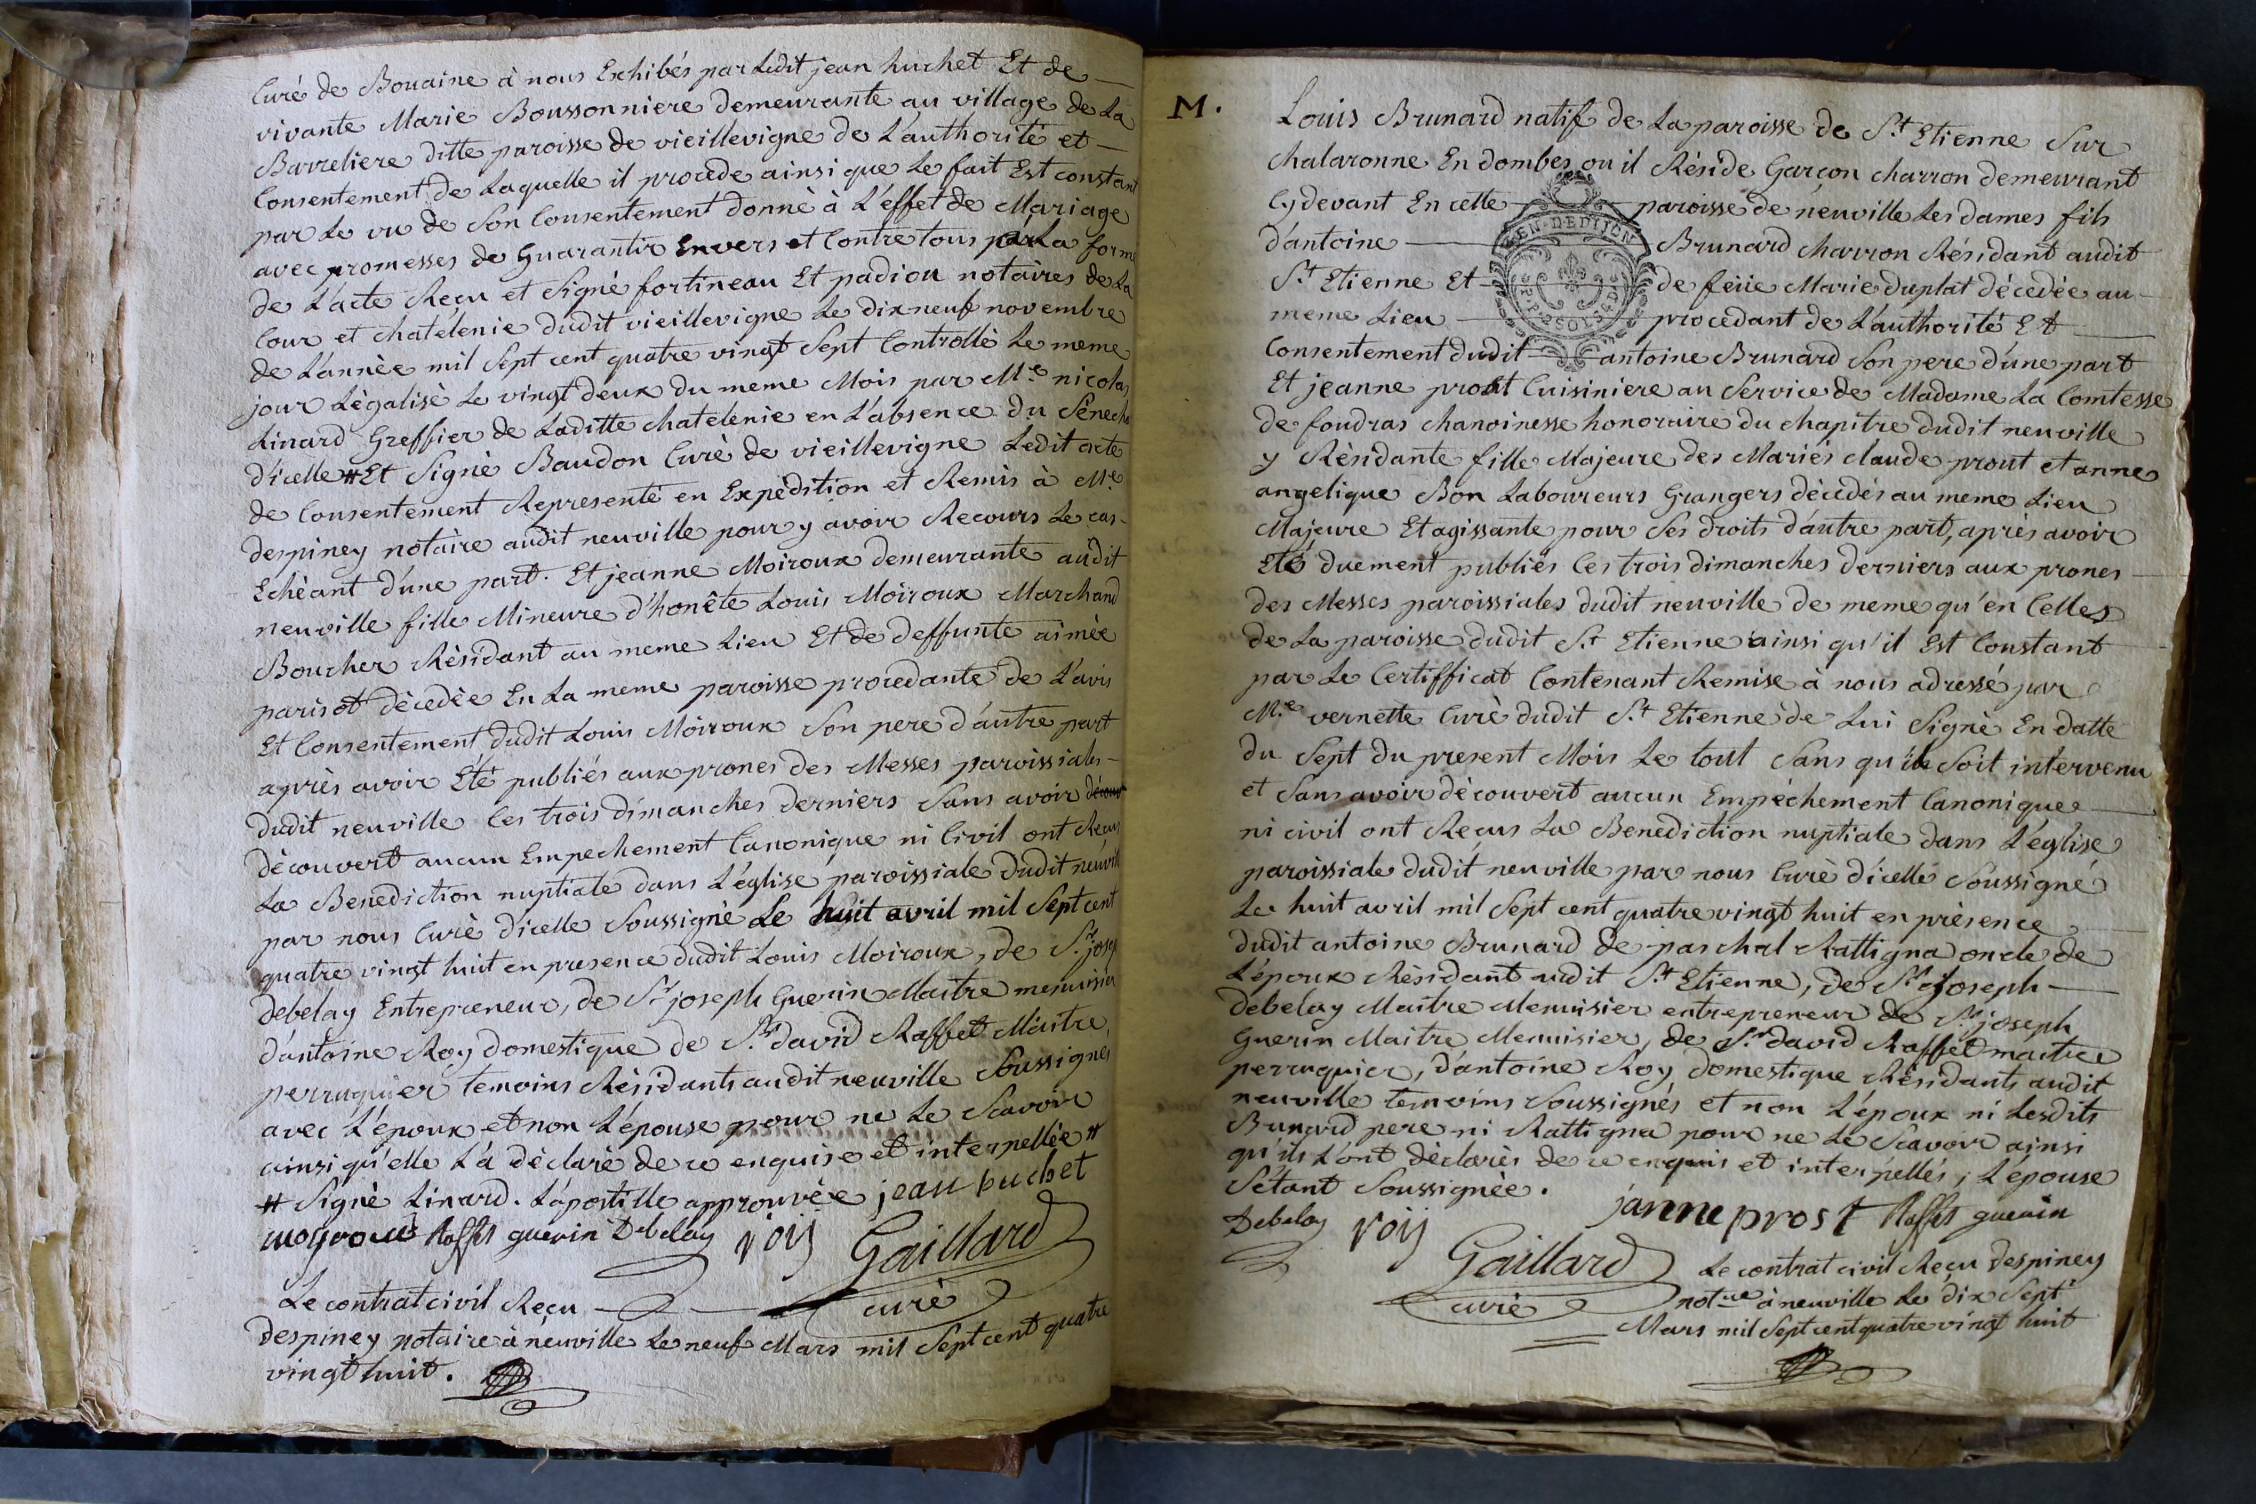 Curé de Bouaine à nous Exhibés par Ledit jean huchet Et de
vivante Marie Boussonniere demeurante au village de La
Barreliere ditte paroisse de vieillevigne de L'authorité et
Consentement de Laquelle il procède ainsi que Le fait Est constant
par Le vu de Son Consentement donnè à L'effet de Mariage
avec promesses de Guarantir Envers et Contre tous par La forme
de L'acte Reçu et Signè fortineau Et padiou notaires de La
Cour et chatèlenie dudit vieillevigne Le dixneuf novembre
de L'année mil Sept cent quatre vingt Sept Controllè Le meme
jour Lègalisè Le vingt deux du meme Mois par M.e nicolas
Linard Greffier de Laditte chatelenie en L'absence du Sènecha
D'icelle # Et Signè Baudon Curè de vieillevigne Ledit acte
de Consentement Representé en Expèdition et Remis à M.e
despiney notaire audit neuville pour y avoir Recours Le cas-
Echèant d'une part. Et jeanne Moiroux demeurante audit
neuville fille Mineure d'honête Louis Moiroux Marchand
Boucher Rèsidant au meme Lieu Et de deffunte aimèe
parisot dècedèe En La meme paroisse procedante de L'avis
Et Consentement dudit Louis Moiroux Son pere d'autre part
après avoir Eté publiés aux prones des Messes paroissiales
dudit neuville Ces trois dimanches derniers Sans avoir
dècouvert aucun Empechement Canonique ni Civil ont Reçus
La Benediction nuptiale dans L'église paroissiale dudit neuvill
par nous Curè d'icelle Soussignè Le huit avril mil Sept cent
quatre vingt huit en presence dudit Louis Moiroux, de S.r josep
debelay Entrepreneur, de S.r joseph Guerin Maitre menuisier
d'antoine Roy domestique de S.r david Raffet Maitre
perruquier temoins Rèsidants audit neuville Soussignes
avec L'époux et non L'épouse pour ne Le Scavoir
ainsi qu'elle L'a dèclarè de ce enquise et interpellèe #
# Signè Linard. L'apostille approuvèe jean huchet
moyroux Raffet guerin Debelay roy Gaillard
curè
Le contrat civil Reçu
despiney notaire à neuville Le neuf Mars mil Sept cent quatre
vingt huit.
M.
Louis Brunard natif de La paroisse de S.t Etienne Sur
chalaronne En dombes ou il Réside Garçon charron demeurant
Cy devant En cette paroisse de neuville Les dames fils
d'antoine Brunard charron Résidant audit
S.t Etienne Et de feüe Marie duplat décedée au
meme Lieu procedant de L'authorité Et
Consentement dudit antoine Brunard Son pere d'une part
Et jeanne prost Cuisiniere au Service de Madame La Comtesse
de foudras chanoinesse honoraire du chapitre dudit neuville
y Rèsidante fille Majeure des Mariés claude prout et anne
angelique Bon Laboureurs Grangers dècedés au meme Lieu
Majeure Et agissante pour Ses droits d'autre part, après avoir
Eté duement publiés Ces trois dimanches derniers aux prones
des Messes paroissiales dudit neuville de meme qu'en Celles
de La paroisse dudit S.t Etienne ainsi qu'il Est Constant
par Le Certifficat Contenant Remise à nous adressé par
M.e vernette Curè dudit S.t Etienne de Lui Signè En datte
du Sept du present Mois Le tout Sans qu'il Soit intervenu
et Sans avoir dècouvert aucun Empéchement Canonique
ni civil ont Reçus La Benediction nuptiale dans L'église
paroissiale dudit neuville par nous Curè d'icelle Soussigné
Le huit avril mil Sept cent quatre vingt huit en prèsence
dudit antoine Brunard de paschal Rattigna oncle de
L'époux Rèsidant audit S.t Etienne, de S.r joseph
debelay Maitre Menuisier entrepreneur de S.r joseph
Guerin Maitre Menuisier, de S.r david Raffet maitre
perruquier, d'antoine Roy domestique Rèsidants audit
neuville temoins Soussignés et non L'époux ni Lesdits
Brunard pere ni Rattigna pour ne Le Scavoir ainsi
qu'ils L'ont dèclarès de ce enquis et interpellés, L'epouse
S'étant Soussignèe.
janne prost Raffet guerin
Debelay roy
Gaillard Le contrat civil Reçu despiney
curè not.re à neuville Le dix Sept
Mars mil Sept cent quatre vingt huit